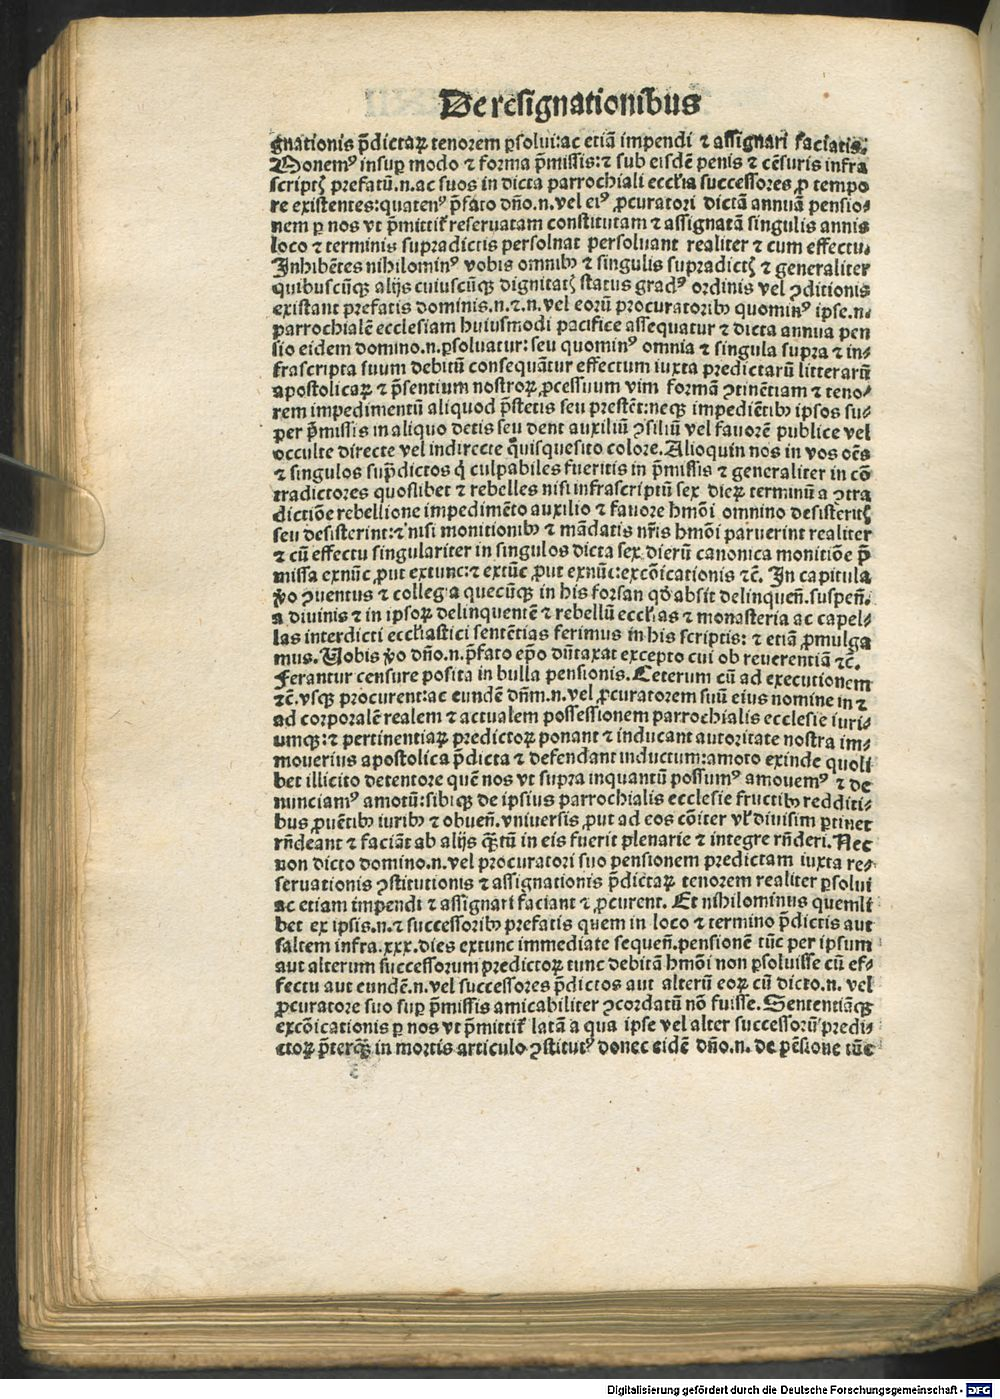 De resignationibus
gnationis p̄dictaꝝ tenorem ꝑsolui: ac etiā impendi ⁊ assignari faciatis.
Monemꝰ insuꝑ modo ⁊ forma p̄missis: ⁊ sub eisdē penis ⁊ cēsuris infra
scriptꝭ prefatū .n. ac suos in dicta parrochiali eccłia successores ꝓ tempo
re existentes: quatenꝰ p̄fato dño .n. vel eiꝰ ꝓcuratori dictā annuā pensio⸗
nem ꝑ nos vt p̄mittit̄ reseruatam constitutam ⁊ assignatā singulis annis
loco ⁊ terminis supradictis persoluat persoluant realiter ⁊ cum effectu.
Inhibētes nihilominꝰ vobis omnibꝰ ⁊ singulis supradictꝭ ⁊ generaliter
quibuscūqꝫ alijs cuiuscūqꝫ dignitatꝭ status gradꝰ ordinis vel ꝯditionis
existant prefatis dominis .n. ⁊ .n. vel eorū procuratoribꝰ quominꝰ ipse .n.
parrochialē ecclesiam huiusmodi pacifice assequatur ⁊ dicta annua pen
sio eidem domino .n. ꝑsoluatur: seu quominꝰ omnia ⁊ singula supra ⁊ in⸗
frascripta suum debitū consequātur effectum iuxta predictarū litterarū
apostolicaꝝ ⁊ p̄sentium nostroꝝ ꝓcessuum vim formā ꝯtinētiam ⁊ teno⸗
rem impedimentū aliquod p̄stetis seu prestēt: neqꝫ impediētibꝰ ipsos su⸗
per p̄missis in aliquo detis seu dent auxiliū ꝯsiliū vel fauorē publice vel
occulte directe vel indirecte quisquesito colore. Alioquin nos in vos oēs
⁊ singulos sup̄dictos q̇ culpabiles fueritis in p̄missis ⁊ generaliter in cō
tradictores quoslibet ⁊ rebelles nisi infrascriptū sex dieꝝ terminū a ꝯtra
dictiōe rebellione impedimēto auxilio ⁊ fauore hmōi omnino desisteritꝭ
seu desisterint: ⁊ nisi monitionibꝰ ⁊ mādatis nr̄is hmōi paruerint realiter
⁊ cū effectu singulariter in singulos dicta sex dierū canonica monitiōe p̄
missa exnūc ꝓut extunc: ⁊ extūc ꝓut exnūc: excōicationis ⁊c̄. In capitula
ꝟo ꝯuentus ⁊ collegia quecūqꝫ in his forsan qđ absit delinqueñ. suspeñ.
a diuinis ⁊ in ipsoꝝ delinquentē ⁊ rebellū eccłias ⁊ monasteria ac capel⸗
las interdicti eccłiastici sentētias ferimus in his scriptis: ⁊ etiā ꝓmulga
mus. Uobis ꝟo dño .n. p̄fato ep̄o dūtaxat excepto cui ob reuerentiā ⁊c̄.
Ferantur censure posita in bulla pensionis. Ceterum cū ad executionem
⁊c̄. vsqꝫ procurent: ac eundē dñm .n. vel ꝓcuratorem suū eius nomine in ⁊
ad corporalē realem ⁊ actualem possessionem parrochialis ecclesie iuri⸗
umqꝫ: ⁊ pertinentiaꝝ predictoꝝ ponant ⁊ inducant autoritate nostra im⸗
mouerius apostolica p̄dicta ⁊ defendant inductum: amoto exinde quoli
bet illicito detentore quē nos vt supra inquantū possumꝰ amouemꝰ ⁊ de
nunciamꝰ amotū: sibiqꝫ de ipsius parrochialis ecclesie fructibꝰ redditi⸗
bus ꝓuētibꝰ iuribꝰ ⁊ obueñ. vniuersis ꝓut ad eos cōiter vł diuisim ꝑtinet
rñdeant ⁊ faciāt ab alijs q̄tū in eis fuerit plenarie ⁊ integre rñderi. Nec
non dicto domino .n. vel procuratori suo pensionem predictam iuxta re⸗
seruationis ꝯstitutionis ⁊ assignationis p̄dictaꝝ tenorem realiter ꝑsolui
ac etiam impendi ⁊ assignari faciant ⁊ ꝓcurent. Et nihilominus quemli
bet ex ipsis .n. ⁊ successoribꝰ prefatis quem in loco ⁊ termino p̄dictis aut
saltem infra .xxx. dies extunc immediate sequeñ. pensionē tūc per ipsum
aut alterum successorum predictoꝝ tunc debitā hmōi non ꝑsoluisse cū ef⸗
fectu aut eundē .n. vel successores p̄dictos aut alterū eoꝝ cū dicto .n. vel
ꝓcuratore suo suꝑ p̄missis amicabiliter ꝯcordatū nō fuisse. Sententiāqꝫ
excōicationis ꝑ nos vt p̄mittit̄ latā a qua ipse vel alter successorū predi⸗
ctoꝝ p̄terqꝫ̄ in mortis articulo ꝯstitutꝰ donec eidē dño .n. de pēsione tūc
Digitalisierung gefördert durch die Deutsche Forschungsgemeinschaft - DFG